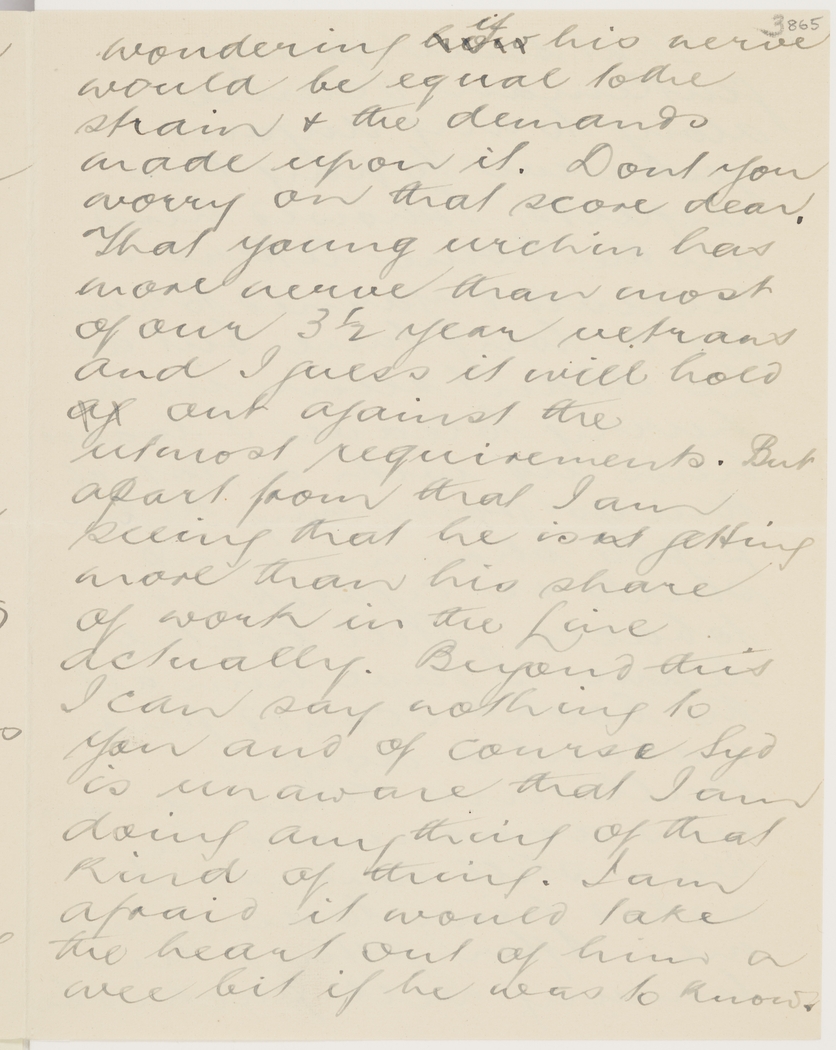 3865
wondering how if his nerve
would be equal to the
strain & the demands
made upon it. Dont you
worry on that score dear.
That young urchin has
more nerve than most
of our 3½ year vetrans
and I guess it will hold
out against the
utmost requirements. But
apart from that I am
seeing that he is not getting
more than his share
of work in the Line
actually. Beyond this
I can say nothing to
you and of course Syd
is unaware that I am
doing anything of that
kind of thing. I am
afraid it would take
the heart out of him a
wee bit if he was to know.